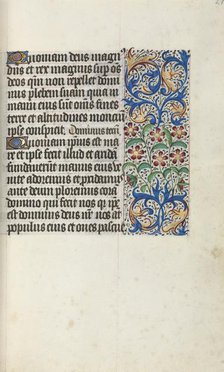 Quoniam deus magn
dns et rex magnus sup os
deos qm non repellet domi
nus plebem suam quia in
manu eius sunt ons fines
terre et altitudines montiu
ipse conspicit Dominus cuni
Quoniam ipsius est ma
re et ipse fecit illud et arida
fundaverunt manus eius v
nite adoremus et pridamu
ante deum ploremus cora
domino qui fecit nos qr ipe
est dominus deus nr nos at
populus eius et oves pascue